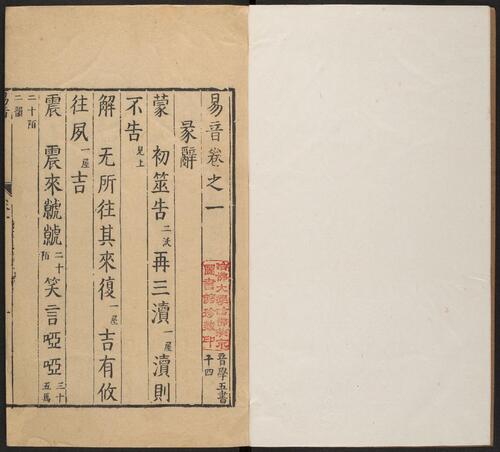 易音卷之一
音學五書
哈佛大學哈佛燕京
圖書館珍藏印
彖辭
蒙　初筮告二沃再三瀆一屋瀆則
不告見上
解　无所往其來復一屋吉有攸
往夙一屋吉
震　震來虩虩二十陌笑言啞啞三十五馬
二十陌
二韻